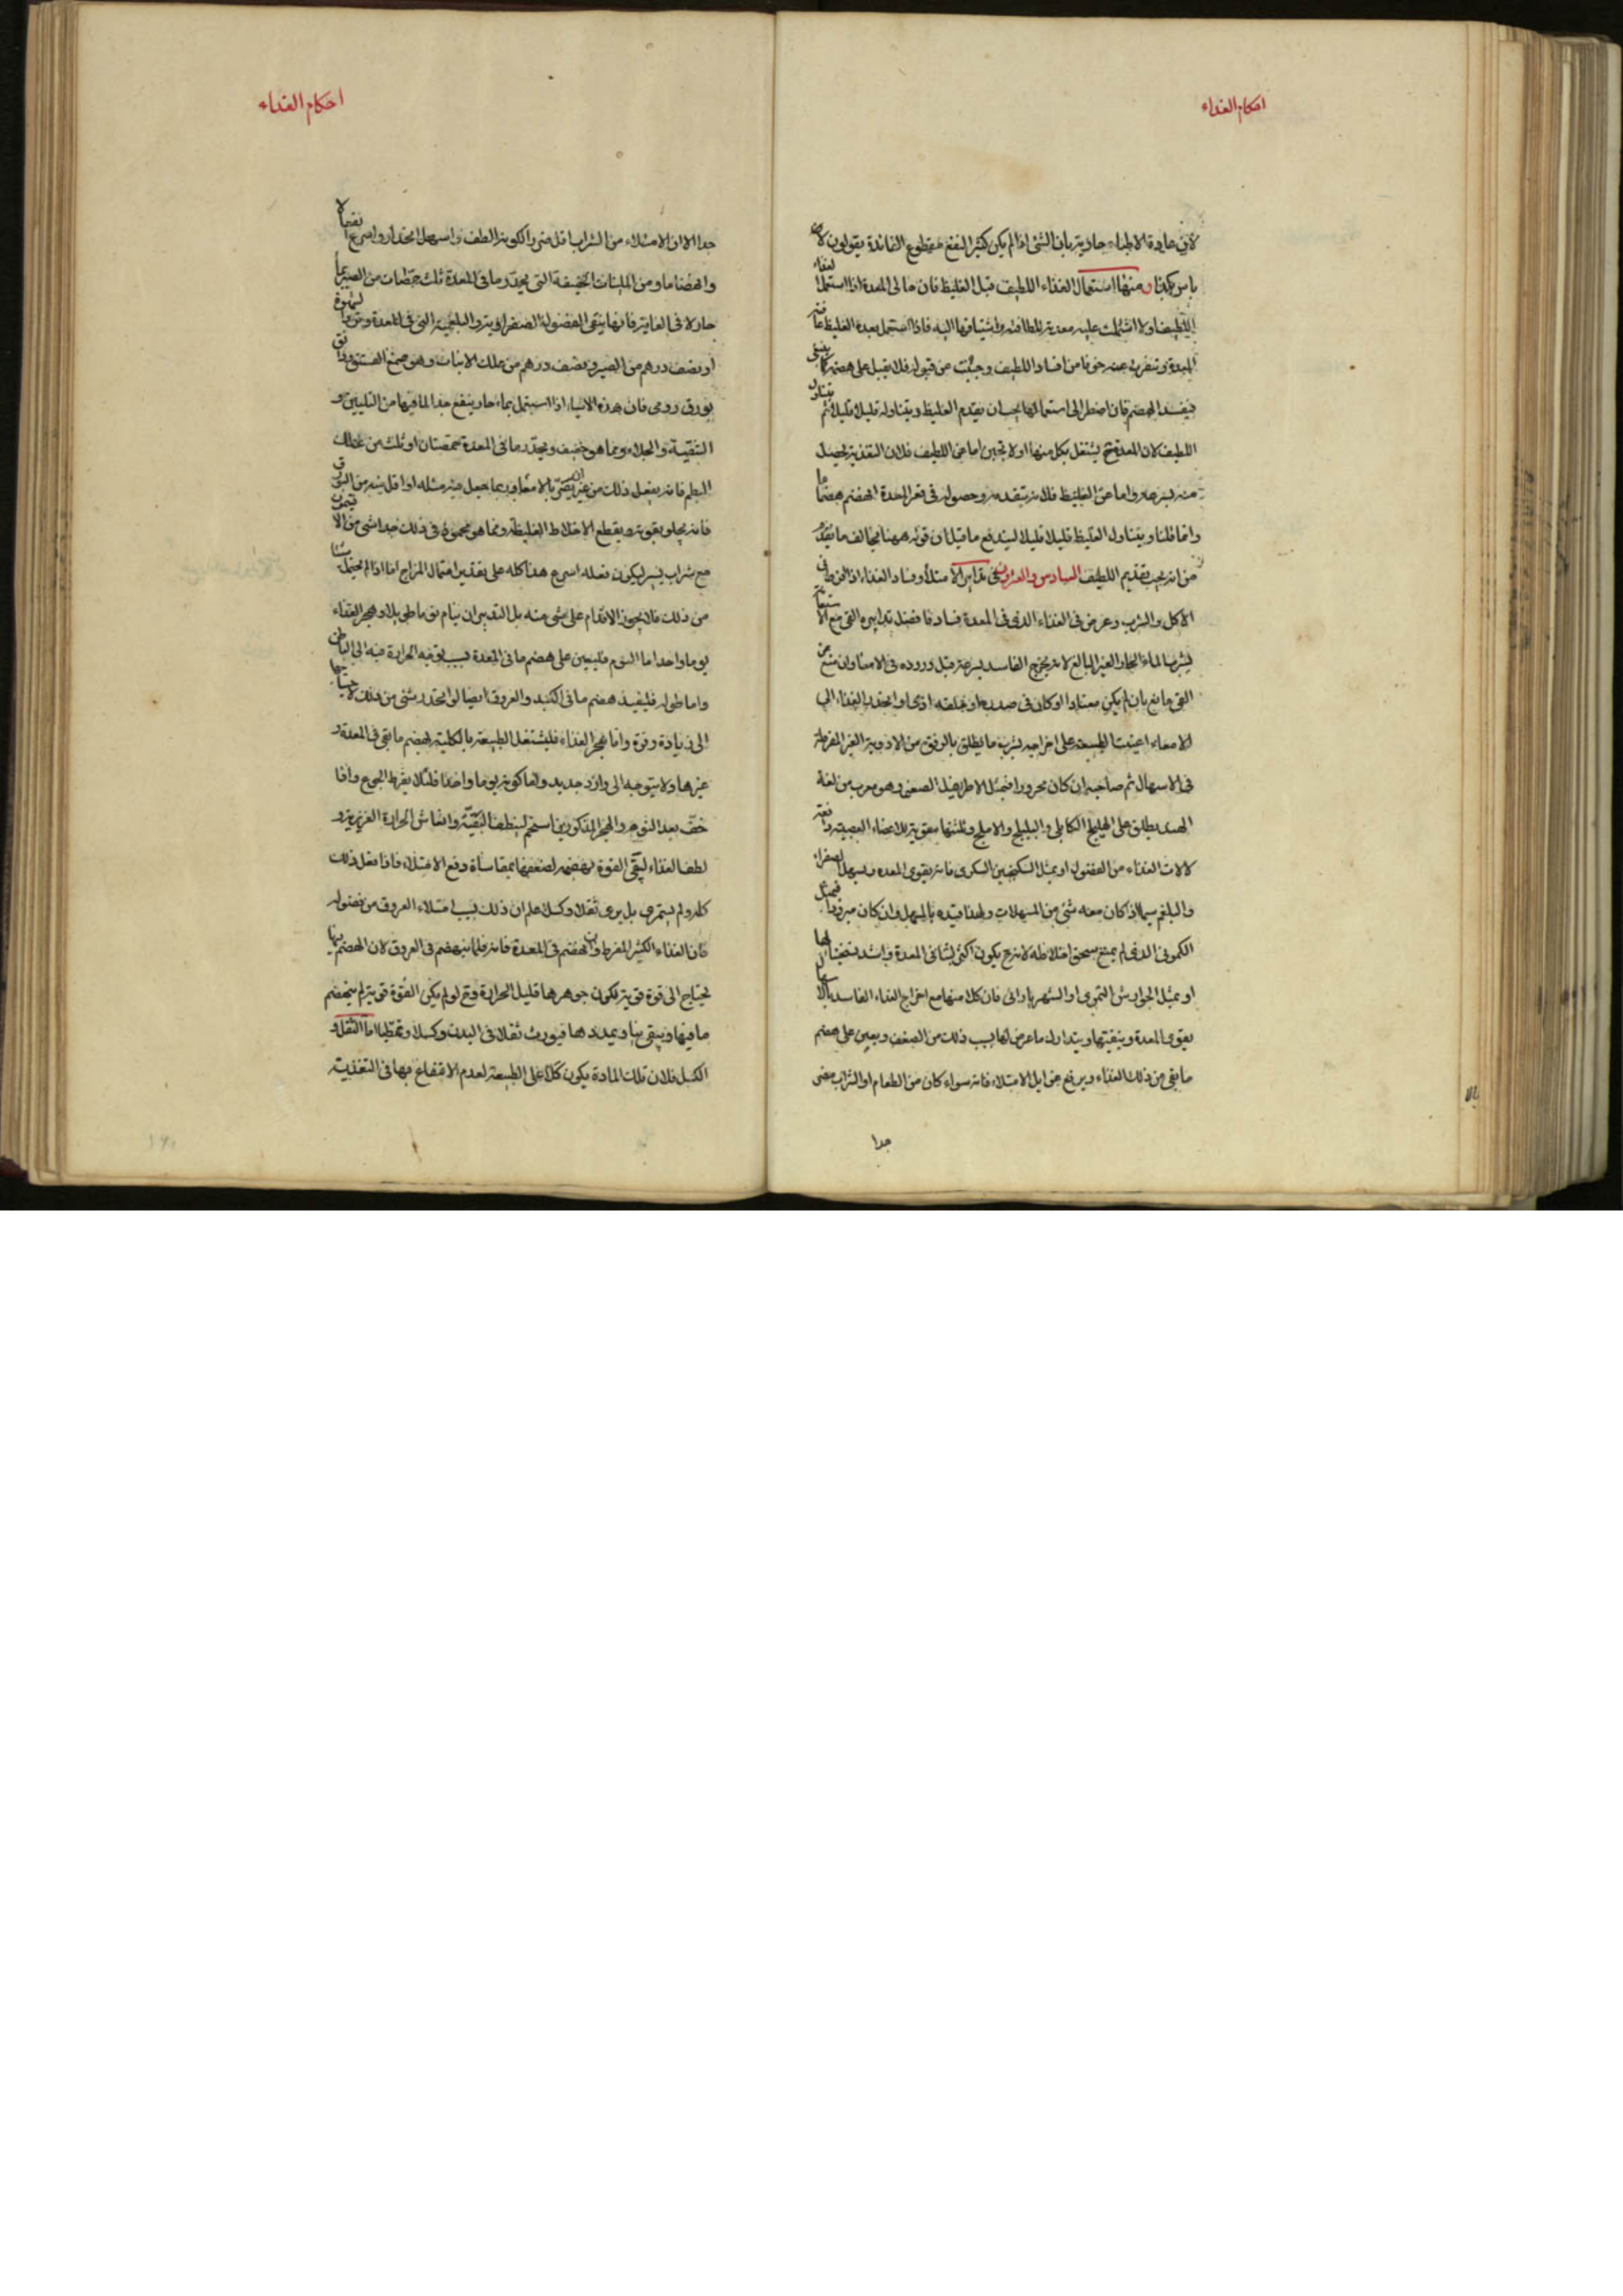 احكام الغذاء
لان عادة الاطباء جارية بان الشئ اذا لم يكن كثير النفع مقطوع الفائدة يقولون لا
باس بكذا ومنها استعمال الغذاء اللطيف قبل الغليظ فان خالى المعدة اذا استعمل الغذاء
اللطيف اولا اشتملت عليه معدته للطافته واشتياقها اليه فاذا استعمل بعده الغليظ عافته
المعدة وتنفرت عنه خوفا من افساد اللطيف من قبوله فلا يقبل على هضمه كما ينبغى
فيفسد الهضم فان اضطر الى استعمالهما يجب ان يقدم الغليظ ويتناوله قليلا قليلا ثم يتناول
اللطيف لان المعدة ح يشتغل بكل منهما اولا تجبن اما عن اللطيف فلان التغذية يحصل
منه بسرعة واما عن الغليظ فلانه بتقدمه وحصوله فى قعر المعدة انهضم هضما ما
وانما قلنا ويتناول الغليظ قليلا قليلا ليندفع ما قيل ان قوله ههنا يخالف ما تقدم
من انه يجب تقديم اللطيف السادس والعشرون فى تدابير الامتلاء وفساد الغذاء اذا افرط فى
الاكل والشرب وعرض فى الغذاء الذى فى المعدة فساد فافضل تدابيره القى مع الاستعانة
بشرب الماء الحار الغير البالغ لانه يخرج الفاسد بسرعة قبل وروده فى الامعاء وان منع عن
القى مانع بان لم يكن معتادا او كان فى صدره او حلقه اذى او انحدر الغذاء الى
الامعاء اعينت الطبيعة على اخراجه بشرب ما يطلق بالرفق من الادوية الغير المفرطة
فى الاسهال ثم صاحبه ان كان محرورا فبمثل الاطريفل الصغير وهو معرب من لغة
الهند يطلق على الهليلج الكابلى والبليلج والاملج وثلثتها مقوية للاعضاء العصبية دافعة
لالات الغذاء من الفضول او بمثل السكنجبين السكرى فانه يقوى المعدة ويسهل الصفراء
والبلغم سيما اذا كان معه شئ من المسهلات ولهذا قيده بالمسهل وان كان مبرودا فبمثل
الكمونى الذى لم يمنع سحق اخلاطه لانه ح يكون اكثر لبثا فى المعدة واشد تسخينا لها
او بمثل الجوارش التمرى او الشهرياران فان كلا منها مع اخراج الغذاء الفاسد بالاسهال
يقوى المعدة وينقيها ويتدارك ما عرض لها بسبب ذلك من الضعف ويعين على هضم
ما بقى من ذلك الغذاء ويرفع عن ايل الامتلاء فانه سواء كان من الطعام او الشراب مضر
جدا
احكام الغذاء
جدا الا ان الامتلاء من الشراب اقل ضررا لكونه الطف واسهل انحدارا واسرع انفعالا
وانهضاما ومن الملينات الخفيفة التى يحدر ما فى المعدة ثلث حمصات من الصبر بماء
حار لا فى الغاية فانها ينقى الفضول الصفراوية والبلغمية التى فى المعدة
او نصف درهم من الصبر ونصف درهم من علك الانباط وهو صمغ الفستق ودانق
بورق رومى فان هذه الاشياء اذا استعمل بماء حار ينفع جدا لما فيها من التليين و
التنقية والجلاء ومما هو خفيف ويحدر ما فى المعدة حمصتان او ثلث من علك
البطم فانه يفعل ذلك من غير ان يضر بالامعاء وربما جعل معه مثله او اقل منه من البورق
فانه يجلو بقوته ويقطع الاخلاط الغليظة ومما هو محمود فى ذلك جدا شئ من الافتيمون
مع شراب يسير ليكون فعله اسرع هذا كله على تقدير احتمال المزاج اما اذا لم يحتمل شيئا
من ذلك فلا يجوز الاقدام على شئ منه بل التدبير ان ينام نوما طويلا ويهجر الغذاء
يوما واحدا اما النوم فليعين على هضم ما فى المعدة بسبب توجه الحرارة فيه الى الباطن
واما طوله فليفيد هضم ما فى الكبد والعروق ايضا لو انحدر شئ من ذلك
الى زيادة قوة واما هجر الغذاء فليشتغل الطبيعة بالكلية لهضم ما بقى فى المعدة و
غيرها ولا يتوجه الى وارد جديد وانما كونه يوما واحدا فلئلا يفرط الجوع واذا
خف بعد النوم والهجر المذكورين استحم لينظف البقية وانعاش الحرارة الغريزية و
لطف الغذاء ليقوى القوة لهضمه لضعفها بمقاساة دفع الامتلاء فاذا فعل ذلك
كله ولم يستمرئ بل يرى ثقلا وكسلا علم ان ذلك بسبب امتلاء العروق من فضوله
فان الغذاء الكثير المفرط وان انهضم فى المعدة فانه قلما ينهضم فى العروق لان الهضم فيها
يحتاج الى قوة قوية لكون جوهرها قليل الحرارة وح لو لم يكن القوة قوية لم ينهضم
ما فيها ويبقى نيا ويمددها فيورث ثقلا فى البدن وكسلا وتمطيا اما الثقل و
الكسل فلان تلك المادة يكون كلا على الطبيعة لعدم الانتفاع بها فى التغذية